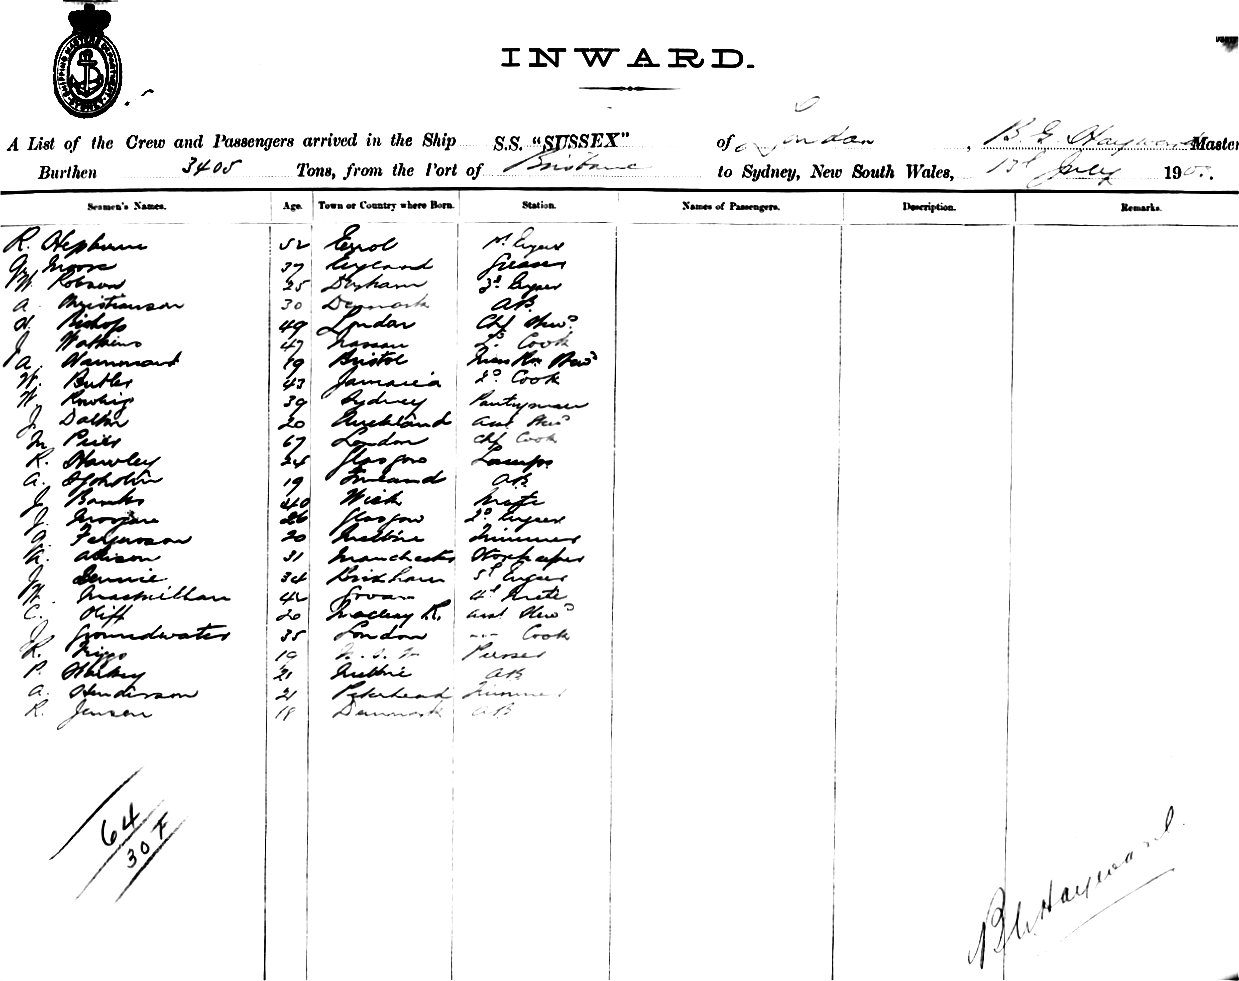 SHIPPING MASTERS DEPARTMENT SYDNEY
INWARD.
A List of the Crew and Passengers arrived in the Ship S.S. "SUSSEX" of London, B. G. Hayward Master
Burthen 3405 Tons, from the Port of Brisbane to Sydney, New South Wales, July 190
Seamen's Names. Age. Town or Country where Born. Station. Names of Passengers. Description. Remarks.
R. Hepburn 52 Errol 1st Engeer
Moore 37 England Greaser
W. Robson 25 Durham 3d Engeer
A. Christianson 30 Denmark AB
H. Bishop 49 London Chf Stewd
J. Watkins 47 Nassau Cook
A. Hammond 19 Bristol Mess Rm Stewd
W. Butler 43 Jamaica 2d Cook
W. 39 Sydney Pantryman
J. Dalton 20 Auckland asst Stewd
M. 67 London Chf Cook
R. Hawley 24 Glasgow Lamps
A. 19 Finland AB
J. Banks 40 Wick Mate
J. 26 Glasgow 2d Engeer
Ferguson 20 Melbne Trimmer
Allison 31 Manchester Storkeeper
J. Rennie 34 Brixham 5th Engeer
W. Macmillan 42 Govan 4th Mate
C. Oliff 20 Macleay R. asst Stewd
J. Groundwater 35 London Cook
R. 19 N. S. W Purser
P. 21 Melbne AB
A. Henderson 21 Peterhead Trimmer
R. Jensen 18 Denmark AB
64
30 F
Hayward